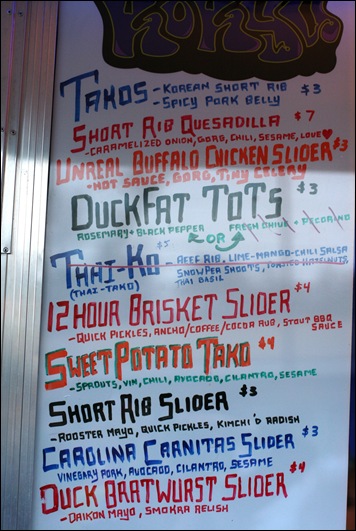 KOKYU
TAKOS - KOREAN SHORT RIB $3
- SPICY PORK BELLY
SHORT RIB QUESADILLA $7
- CARAMELIZED ONION, GORG, CHILI, SESAME, LOVE♥
UNREAL BUFFALO CHICKEN SLIDER $3
- HOT SAUCE, GORG, TINY CELERY
DUCKFAT TOTS $3
ROSEMARY + BLACK PEPPER OR FRESH CHIVE + PECORINO
THAI-KO $5 - BEEF RIB, LIME-MANGO-CHILI SALSA
(THAI-TAKO) SNOW PEA SHOOTS, TOASTED HAZELNUTS,
THAI BASIL
12 HOUR BRISKET SLIDER $4
- QUICK PICKLES, ANCHO/COFFEE/COCOA RUB, STOUT BBQ
SAUCE
SWEET POTATO TAKO $4
- SPROUTS, VIN, CHILI, AVOCADO, CILANTRO, SESAME
SHORT RIB SLIDER $3
- ROOSTER MAYO, QUICK PICKLES, KIMCHI'D RADISH
CAROLINA CARNITAS SLIDER $3
VINEGARY PORK, AVOCADO, CILANTRO, SESAME
DUCK BRATWURST SLIDER $4
- DAIKON MAYO, SMOKRA RELISH